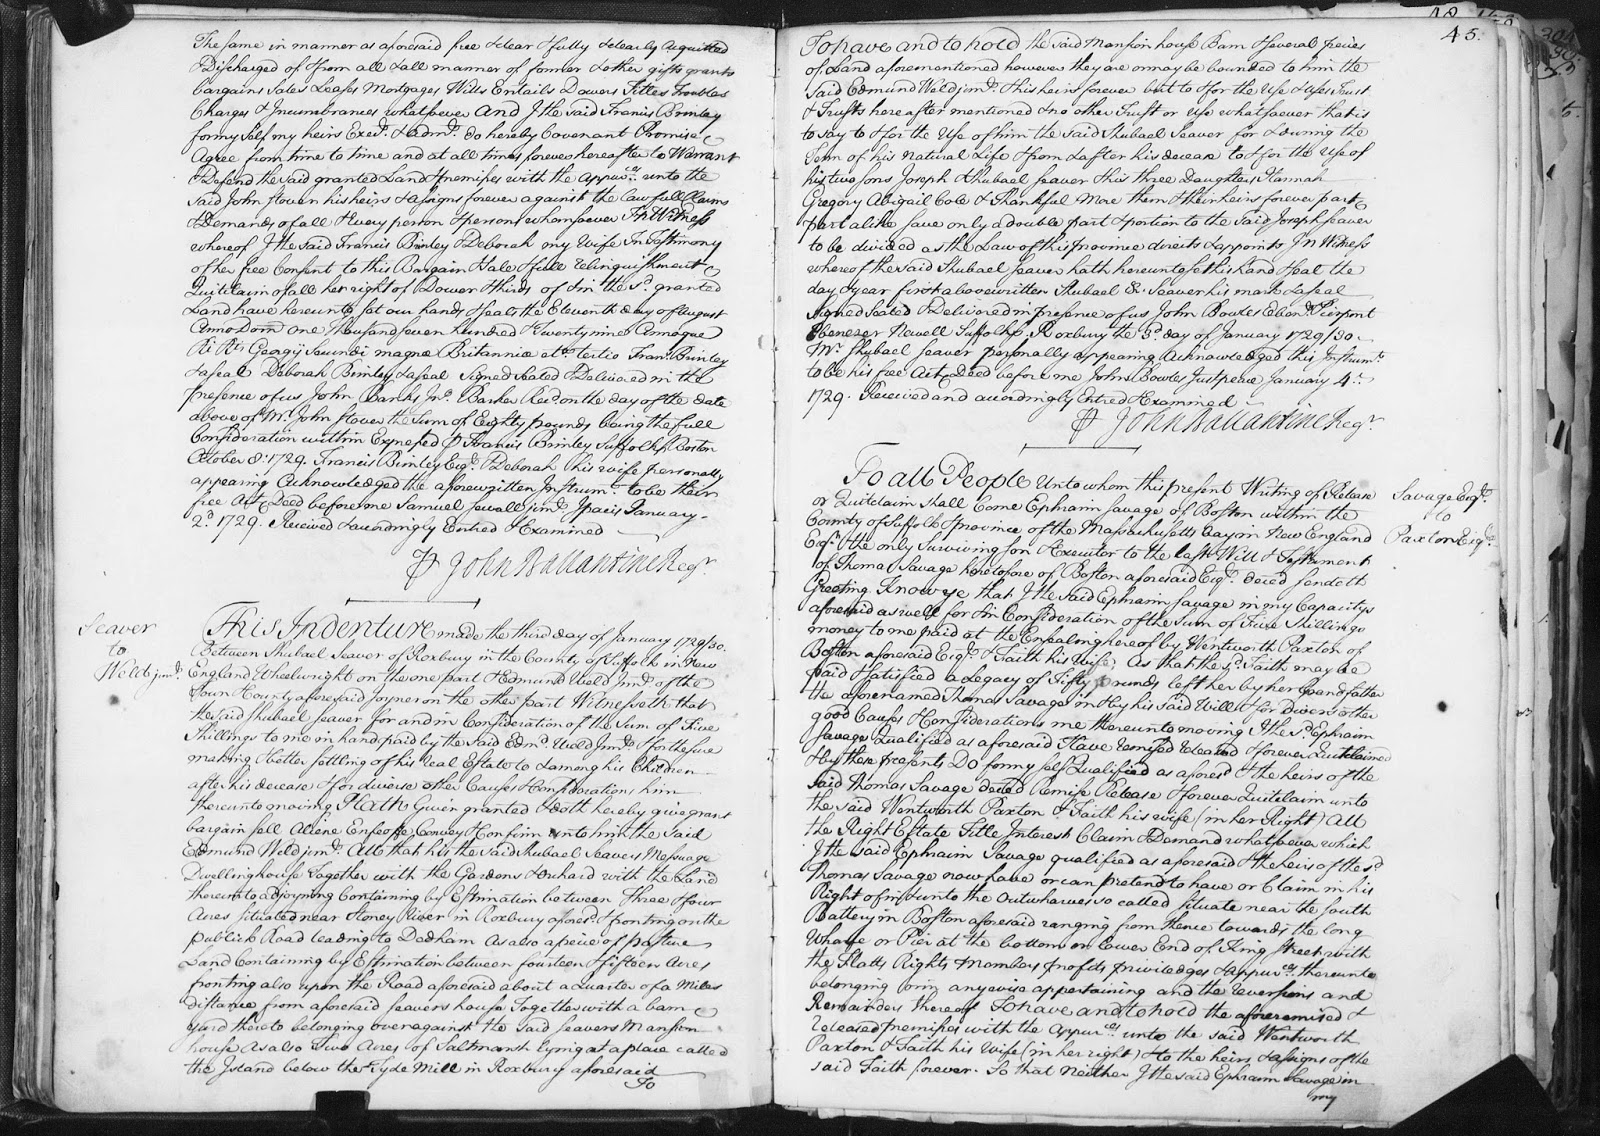 The same in manner as aforesaid free & clear & fully & clearly Acquitted
& Discharged of & from all & all manner of former & other gifts grants
bargains Sales Leases Mortgages Wills Entails Dowers Titles Troubles
Charges & Incumbrances whatsoever And I the said Francis Brinley
for my Self my heirs Execrs. & admrs. do hereby Covenant Promise &
Agree from time to time and at all times forever hereafter to Warrant
& Defend the said granted Land & premises with the Appurces unto the
said John Stover his heirs & assigns forever against the Lawfull Claims
& Demands of all & every person & persons whomsoever In Witness
whereof I the said Francis Brinley & Deborah my Wife In Testimony
of her free Consent to this Bargain & Sale & full relinquishment &
Quitclaim of all her right of Dower & thirds of & in the sd. granted
Land have hereunto set our hands & seals the Eleventh day of August
Anno Dom one thousand seven hundred & twenty nine Annoque
Ri Rs Georgij Secundi magnæ Britanniæ etc tertio Fran: Brinley
& a seal Deborah Brinley & a seal Signed Sealed & Delivered in the
presence of us John Banks Jno. Barker Recd. on the day of the date
above of Mr. John Stover the Sum of Eighty pounds being the full
Consideration within Expressed P Francis Brinley Suffolk ss Boston
October 8: 1729. Francis Brinley Esqr. & Deborah his wife personally
appearing Acknowledged the aforewritten Instrumt. to be their
free Act & Deed before me Samuel Sewall junr. J pacis January
2d. 1729. Received & accordingly Entred & Examined
P John Ballantine Regr.
Seaver
to
Weld junr.
This Indenture made the third day of January 1729/30.
Between Shubael Seaver of Roxbury in the County of Suffolk in New
England Wheelwright on the one part & Edmund Weld Junr. of the
Town & County aforesaid Joyner on the other part Witnesseth that
the said Shubael Seaver for and in Consideration of the Sum of Five
Shillings to me in hand paid by the said Edmd. Weld Junr. & for the sure
making & better settling of his real Estate to & among his Children
after his decease & for diverse other Causes & Considerations him
thereunto moving Hath Given granted & doth hereby give grant
bargain sell Aliene Enfeoffe Convey & Confirm unto him the said
Edmund Weld junr. All that his the said Shubael Seavers Messuage
Dwellinghouse Together with the Gardens & Orchard with the Land
thereunto adjoyning Containing by Estimation between Three & four
Acres situated near Stoney River in Roxbury aforesd. & fronting on the
publick Road leading to Dedham As also a peice of pasture
Land Containing by Estimation between fourteen & fifteen Acres
fronting also upon the Road aforesaid about a quarter of a Miles
distance from aforesaid seavers house Together with a barn &
yard thereto belonging over against the said seavers Mansion
house As also Two Acres of Saltmarsh Lying at a place called
the Island below the Tyde Mill in Roxbury aforesaid
To
45.
To have and to hold the said Mansion house Barn & several peices
of Land aforementioned however they are or may be bounded to him the
said Edmund Weld junr. & his heirs forever but to & for the Use & Uses Trust
& Trusts hereafter mentioned & no other Trust or Use whatsoever that is
to say to & for the Use of him the said Shubael Seaver for & during the
Term of his Natural Life & from & after his decease to & for the Use of
his two sons Joseph & Shubael Seaver & his three Daughters Hannah
Gregory Abigail Cole & Thankful More them & their heirs forever part &
part alike save only a double part & portion to the said Joseph Seaver
to be divided as the Law of this Province directs & appoints In Witness
whereof the said Shubael Seaver hath hereunto set his hand & seal the
day & year first above written Shubael S. Seaver his mark & a seal
Signed Sealed & Delivered in presence of us John Bowles Ebenr. Pierpont
Ebenezer Newell Suffolk ss. Roxbury the 3d. day of January 1729/30.
Mr. Shubael Seaver personally appearing Acknowledged this Instrumt.
to be his free Act & Deed before me John Bowles Just peace January 4th.
1729. Received and accordingly Entred & Examined
P John Ballantine Regr.
Savage Esqr.
to
Paxton & Esqr.
To all People Unto whom this present Writing of Release
or Quitclaim shall Come Ephraim Savage of Boston within the
County of Suffolk & province of the Massachusetts Bay in New England
Esqr. the only Surviving son & Executor to the last Will & Testament
of Thomas Savage heretofore of Boston aforesaid Esqr. deced sendeth
Greeting Know ye that I the said Ephraim Savage in my Capacity
aforesaid as well for & in Consideration of the Sum of Five Shillings
money to me paid at the Ensealing hereof by Wentworth Paxton of
Boston aforesaid Esqr. & Faith his Wife, As that the sd. Faith may be
paid & satisfied a Legacy of Fifty pounds left her by her Grandfather
the aforenamed Thomas Savage in & by his said Will & for divers other
good Causes & Considerations me thereunto moving I the sd. Ephraim
Savage Qualified as aforesaid Have remised released & forever Quitclaimed
& by these presents Do for my self Qualified as aforesd. & the heirs of the
said Thomas Savage deced Remise Release & forever Quitclaim unto
the said Wentworth Paxton & Faith his wife (in her Right) All
the Right Estate Title Interest Claim & Demand whatsoever which
I the said Ephraim Savage qualified as aforesaid & the heirs of the sd.
Thomas Savage now have or can pretend to have or Claim in his
Right of in & unto the Outwharves so called situate near the South
Battery in Boston aforesaid ranging from thence towards the long
Wharfe or Pier at the bottom or lower End of King street with
the Flatts Rights Members profits priviledges & appurces thereunto
belonging or in anywise appertaining and the reversions and
Remainders thereof To have and to hold the aforeremised &
released premises with the Appurces unto the said Wentworth
Paxton & Faith his Wife (in her right) & to the heirs & assigns of the
said Faith forever. So that Neither I the said Ephraim Savage in
my